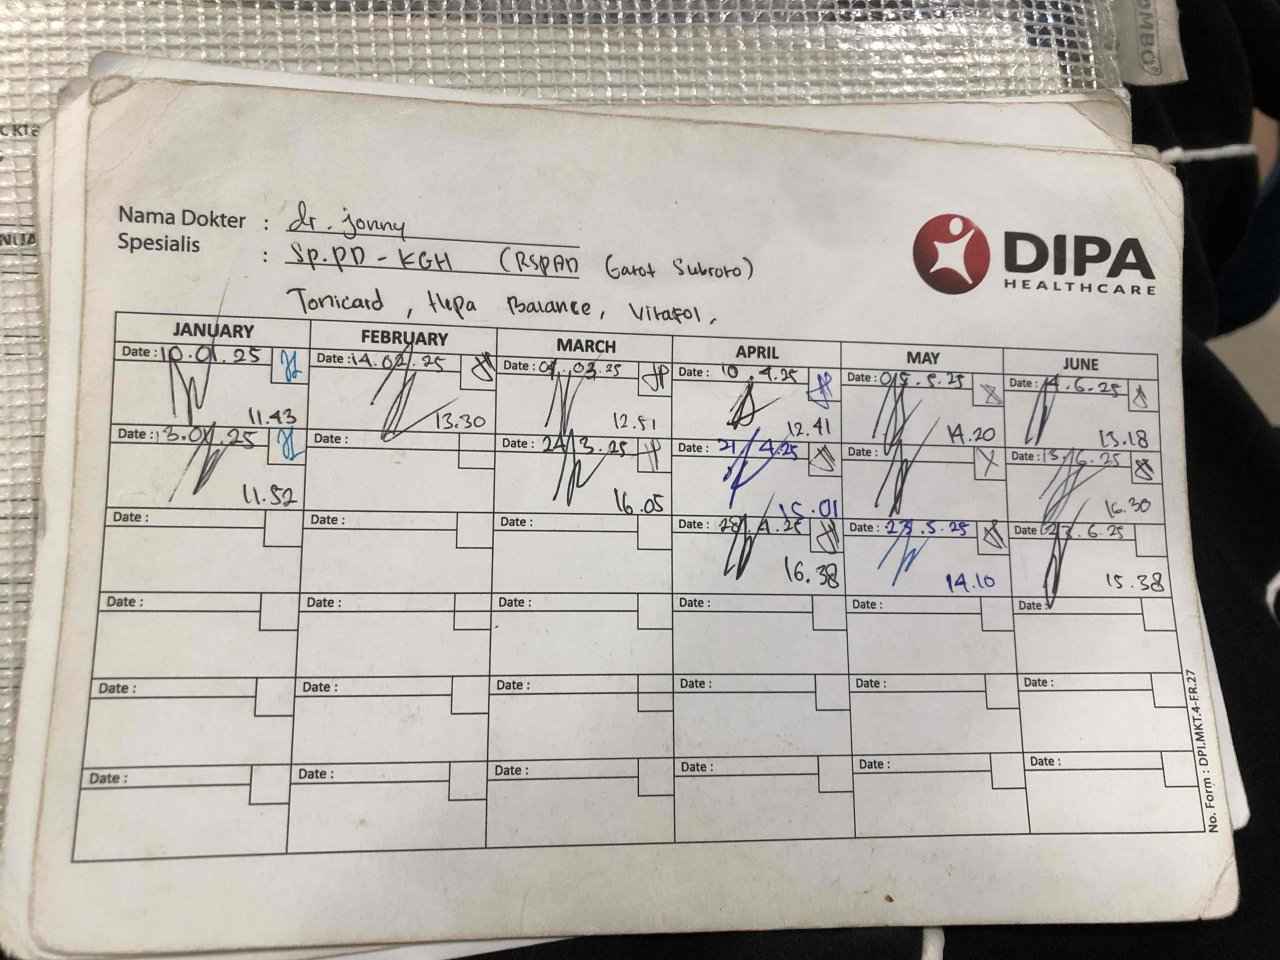 Nama Dokter : dr. jonny
Spesialis : Sp.PD - KGH (RSPAD Gatot Subroto)
Tonicard, Hepa Balance, Vitafol,
DIPA
HEALTHCARE
JANUARY FEBRUARY MARCH APRIL MAY JUNE
Date : 10.01.25 Date : 14.02.25 Date : 03.25 Date : 10.4.25 Date : 5.25 Date : 6.25
11.43 13.30 12.51 12.41 14.20 13.18
Date : 25 Date : Date : 24.3.25 Date : 21.4.25 Date : Date : 6.25
11.52 16.05 15.01 16.30
Date : Date : Date : Date : 28.4.25 Date : 23.5.25 Date : 23.6.25
16.38 14.10 15.38
Date : Date : Date : Date : Date : Date :
Date : Date : Date : Date : Date : Date :
Date : Date : Date : Date : Date : Date :
No. Form : DPI.MKT.4-FR.27